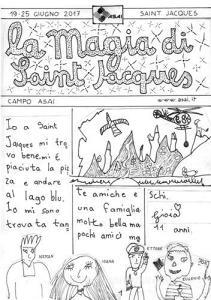 19-25 GIUGNO 2017
ASAI
SAINT JACQUES
La Magia di
Saint Jacques
CAMPO ASAI
www.asai.it
Io a Saint
Jacques mi tro
vo bene. mi È
piaciuta la pi
za e andare
al lago blu.
Io mi sono
trovata tan
te amiche e
una famiglia
molto bella ma
pochi amici mg
Schi,
Gioia
11 anni.
ETTORE